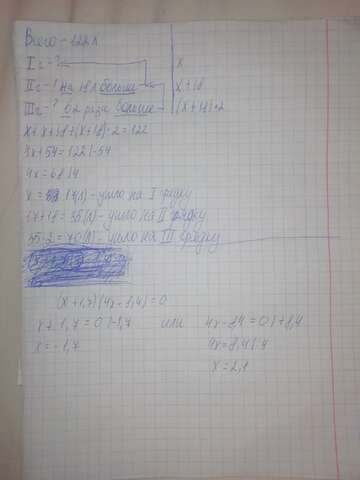 Всего - 122 л
I г - ? x
II г - ? на 18 л больше x+18
III г - ? в 2 раза больше (x+18)·2
x+x+18+(x+18)·2=122
4x+54=122 |-54
4x=68 |:4
x= 17(л) - ушло на I грядку
17+18=35(л) - ушло на II грядку
35·2=70(л) - ушло на III грядку
(x+1,7)(4x-8,4)=0
x+1,7=0 |-1,7 или 4x-8,4=0 |+8,4
x=-1,7 4x=8,4 |:4
x=2,1